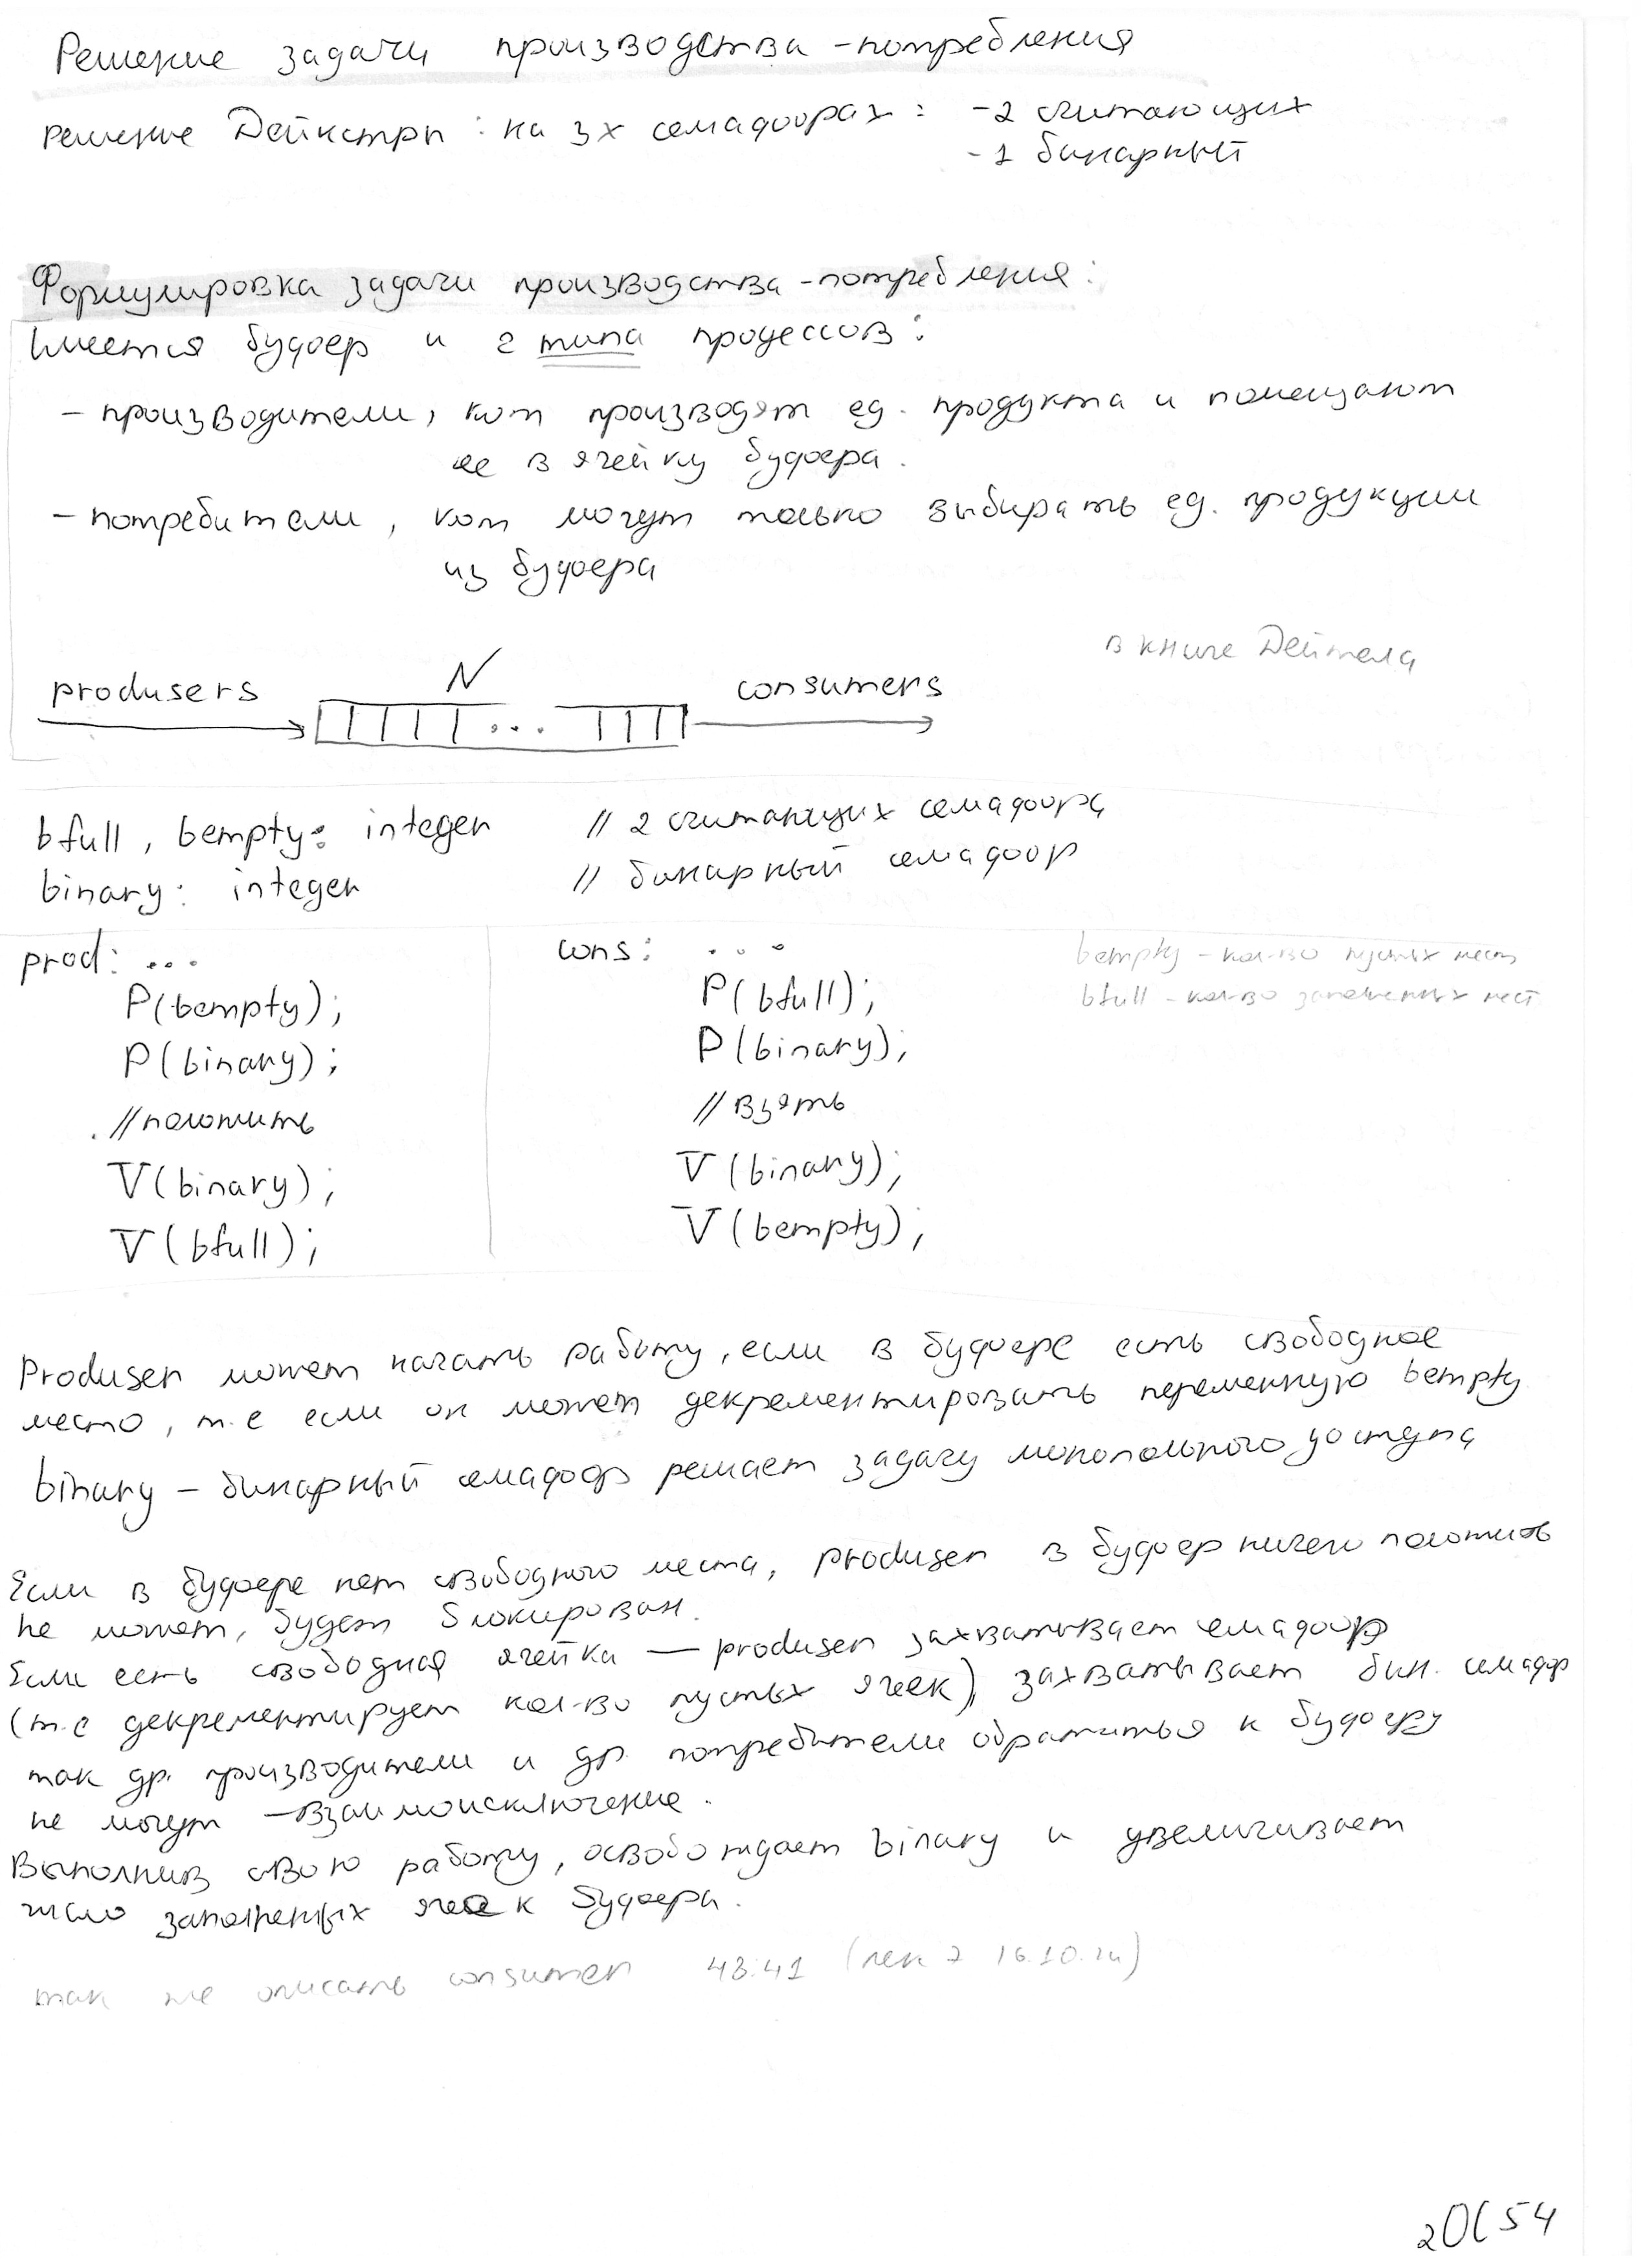 Решение задачи производства-потребления
решение Дейкстры: на 3х семафорах: -2 считающих
-1 бинарный
Формулировка задачи производства-потребления:
Имеется буфер и 2 типа процессов:
- производители, кот производят ед. продукта и помещают
ее в ячейку буфера.
- потребители, кот могут только выбирать ед. продукции
из буфера
в книге Дейтела
produsers N consumers
...
bfull, bempty: integer // 2 считающих семафора
binary: integer // бинарный семафор
prod: ... cons: ...
bempty - кол-во пустых мест
P(bempty); P(bfull);
bfull - кол-во заполненных мест
P(binary); P(binary);
//положить //взять
V(binary); V(binary);
V(bfull); V(bempty);
Produser может начать работу, если в буфере есть свободное
место, т.е если он может декрементировать переменную bempty
binary - бинарный семафор решает задачу монопольного доступа
Если в буфере нет свободного места, produser в буфер ничего положить
не может, будет блокирован.
Если есть свободная ячейка — produser захватывает семафор
(т.е декрементирует кол-во пустых ячеек), захватывает бин. семафор
так др. производители и др. потребители обратиться к буферу
не могут - взаимоисключение.
Выполнив свою работу, освобождает binary и увеличивает
число заполненных ячеек буфера.
так же описать consumer 43:41 (лек 7 16.10.)